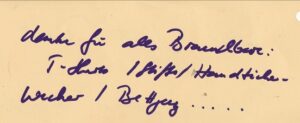 danke für alles Brauchbare:
T-Shirts / Stifte / Handtücher
Wecker / Bettzeug .....